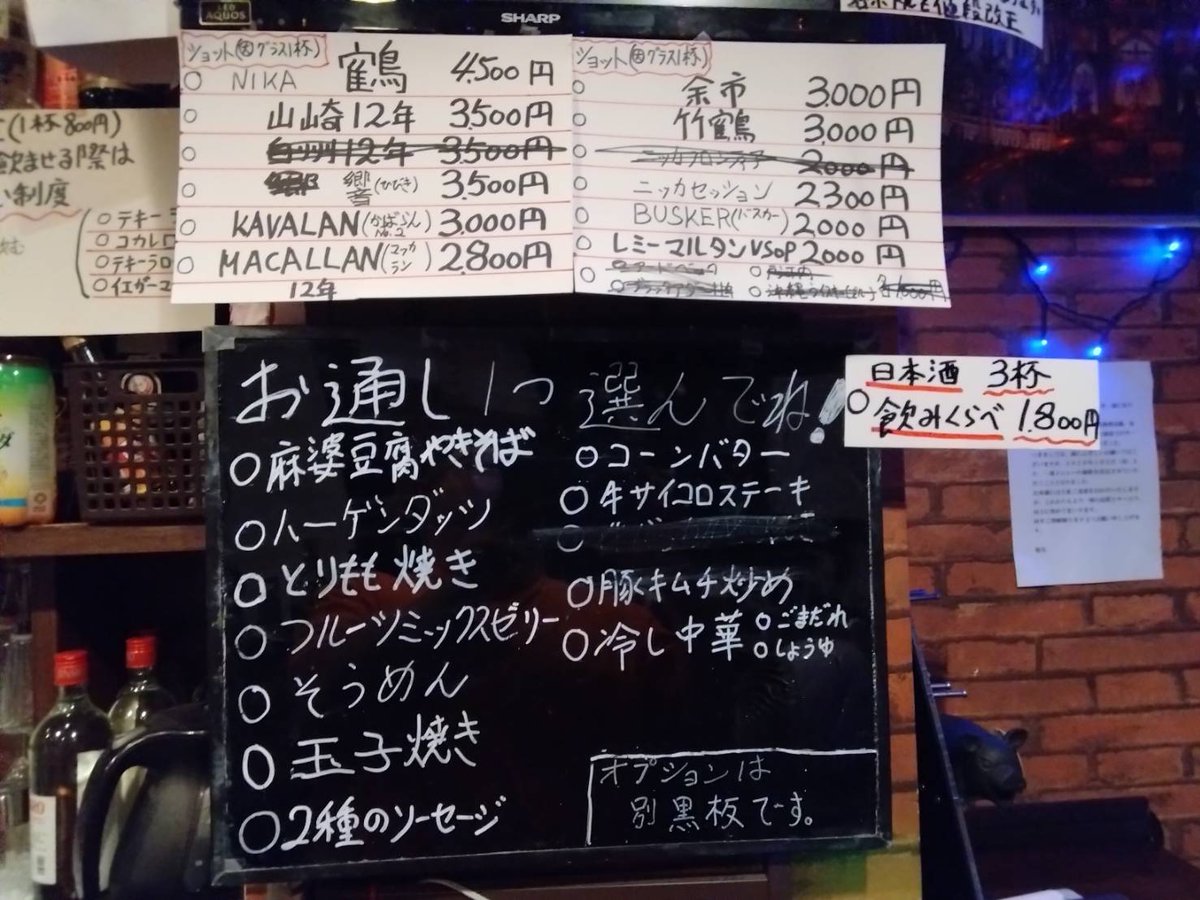 LED
AQUOS
SHARP
ショット(グラス1杯)
○ NIKA 鶴 4,500円
○ 山崎12年 3,500円
○ 白州12年 3,500円
○ 響(ひびき) 3,500円
○ KAVALAN(かばらん No.2) 3,000円
○ MACALLAN(マッカラン) 2,800円
12年
ショット(グラス1杯)
○ 余市 3,000円
○ 竹鶴 3,000円
○ ニッカフロンティア 2000円
○ ニッカセッション 2300円
○ BUSKER(バスカー) 2000円
○ レミーマルタンVSOP 2000円
(1杯800円)
飲ませる際は
い制度
○テキーラ
○コカレロ
○テキーラロ
○イエガーマ
お通し1つ選んでね!
○麻婆豆腐やきそば
○ハーゲンダッツ
○とりもも焼き
○フルーツミックスゼリー
○そうめん
○玉子焼き
○2種のソーセージ
○コーンバター
○牛サイコロステーキ
○豚キムチ炒め
○冷し中華 ○ごまだれ
○しょうゆ
オプションは
別黒板です。
日本酒 3杯
○飲みくらべ 1,800円